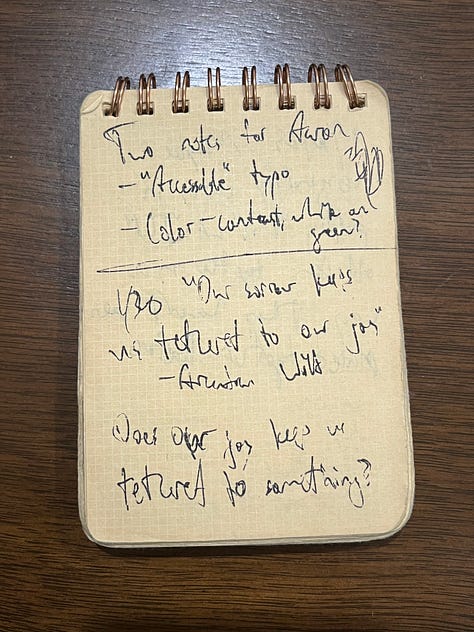 Two notes for Aaron
- "Accessible" typo
- Color-contrast, white on
green?
1/30 "Our sorrow keeps
us tethered to our joy"
- Wild
Does our joy keep us
tethered to something?